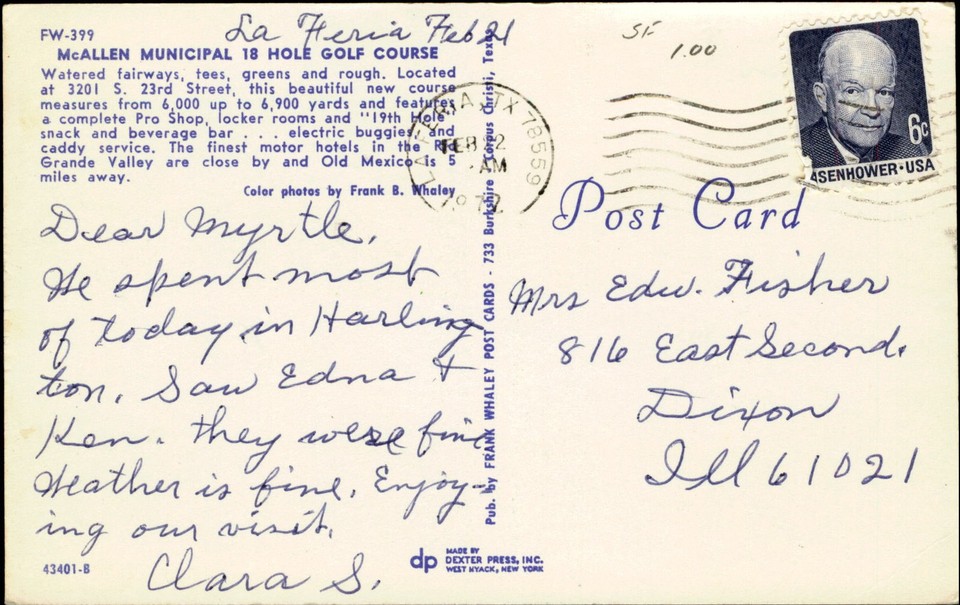 La Feria Feb 21
SF
1.00
FW-399
McALLEN MUNICIPAL 18 HOLE GOLF COURSE
Watered fairways, tees, greens and rough. Located
at 3201 S. 23rd Street, this beautiful new course
measures from 6,000 up to 6,900 yards and features
a complete Pro Shop, locker rooms and "19th Hole"
snack and beverage bar . . . electric buggies and
caddy service. The finest motor hotels in the
Grande Valley are close by and Old Mexico is 5
miles away.
Color photos by Frank B. Whaley
Dear Myrtle,
We spent most
of today in Harling
ton. Saw Edna &
Ken. they were fine
Weather is fine. Enjoy-
ing our visit.
Clara S.
43401-B
Pub. by FRANK WHALEY POST CARDS - 733 Burkshire, Corpus Christi, Texas
LA FERIA, TX 78559
FEB 22
AM
1972
6c
EISENHOWER·USA
Post Card
Mrs Edw. Fisher
816 East Second.
Dixon
Ill 61021
dp
MADE BY
DEXTER PRESS, INC.
WEST NYACK, NEW YORK